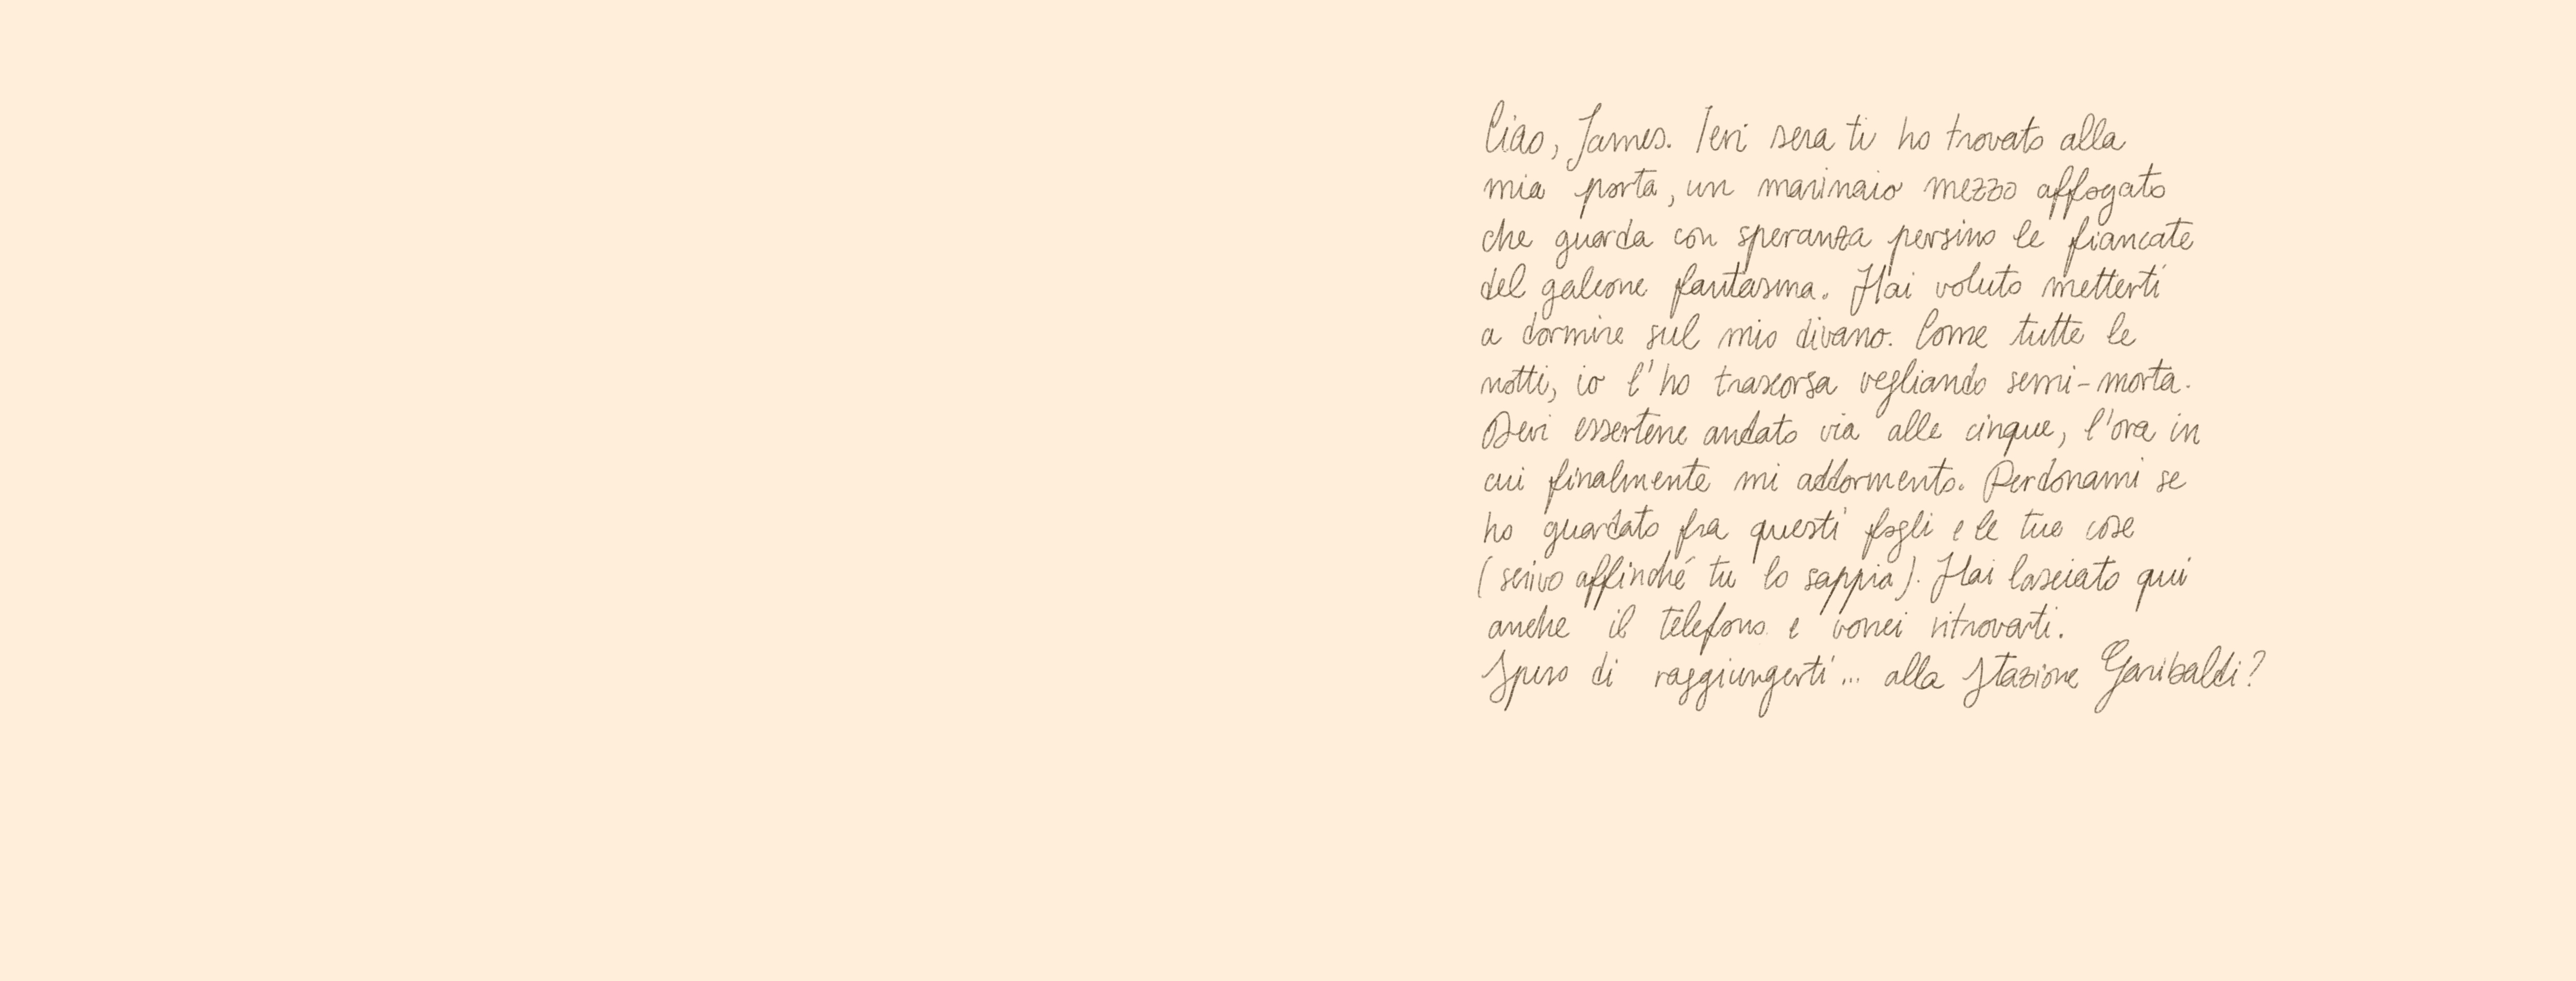 Ciao, James. Ieri sera ti ho trovato alla
mia porta, un marinaio mezzo affogato
che guarda con speranza persino le fiancate
del galeone fantasma. Hai voluto metterti
a dormire sul mio divano. Come tutte le
notti, io l'ho trascorsa vegliando semi-morta.
Devi essertene andato via alle cinque, l'ora in
cui finalmente mi addormento. Perdonami se
ho guardato fra questi fogli e le tue cose
(scrivo affinché tu lo sappia). Hai lasciato qui
anche il telefono e vorrei ritrovarti.
Spero di raggiungerti... alla Stazione Garibaldi?